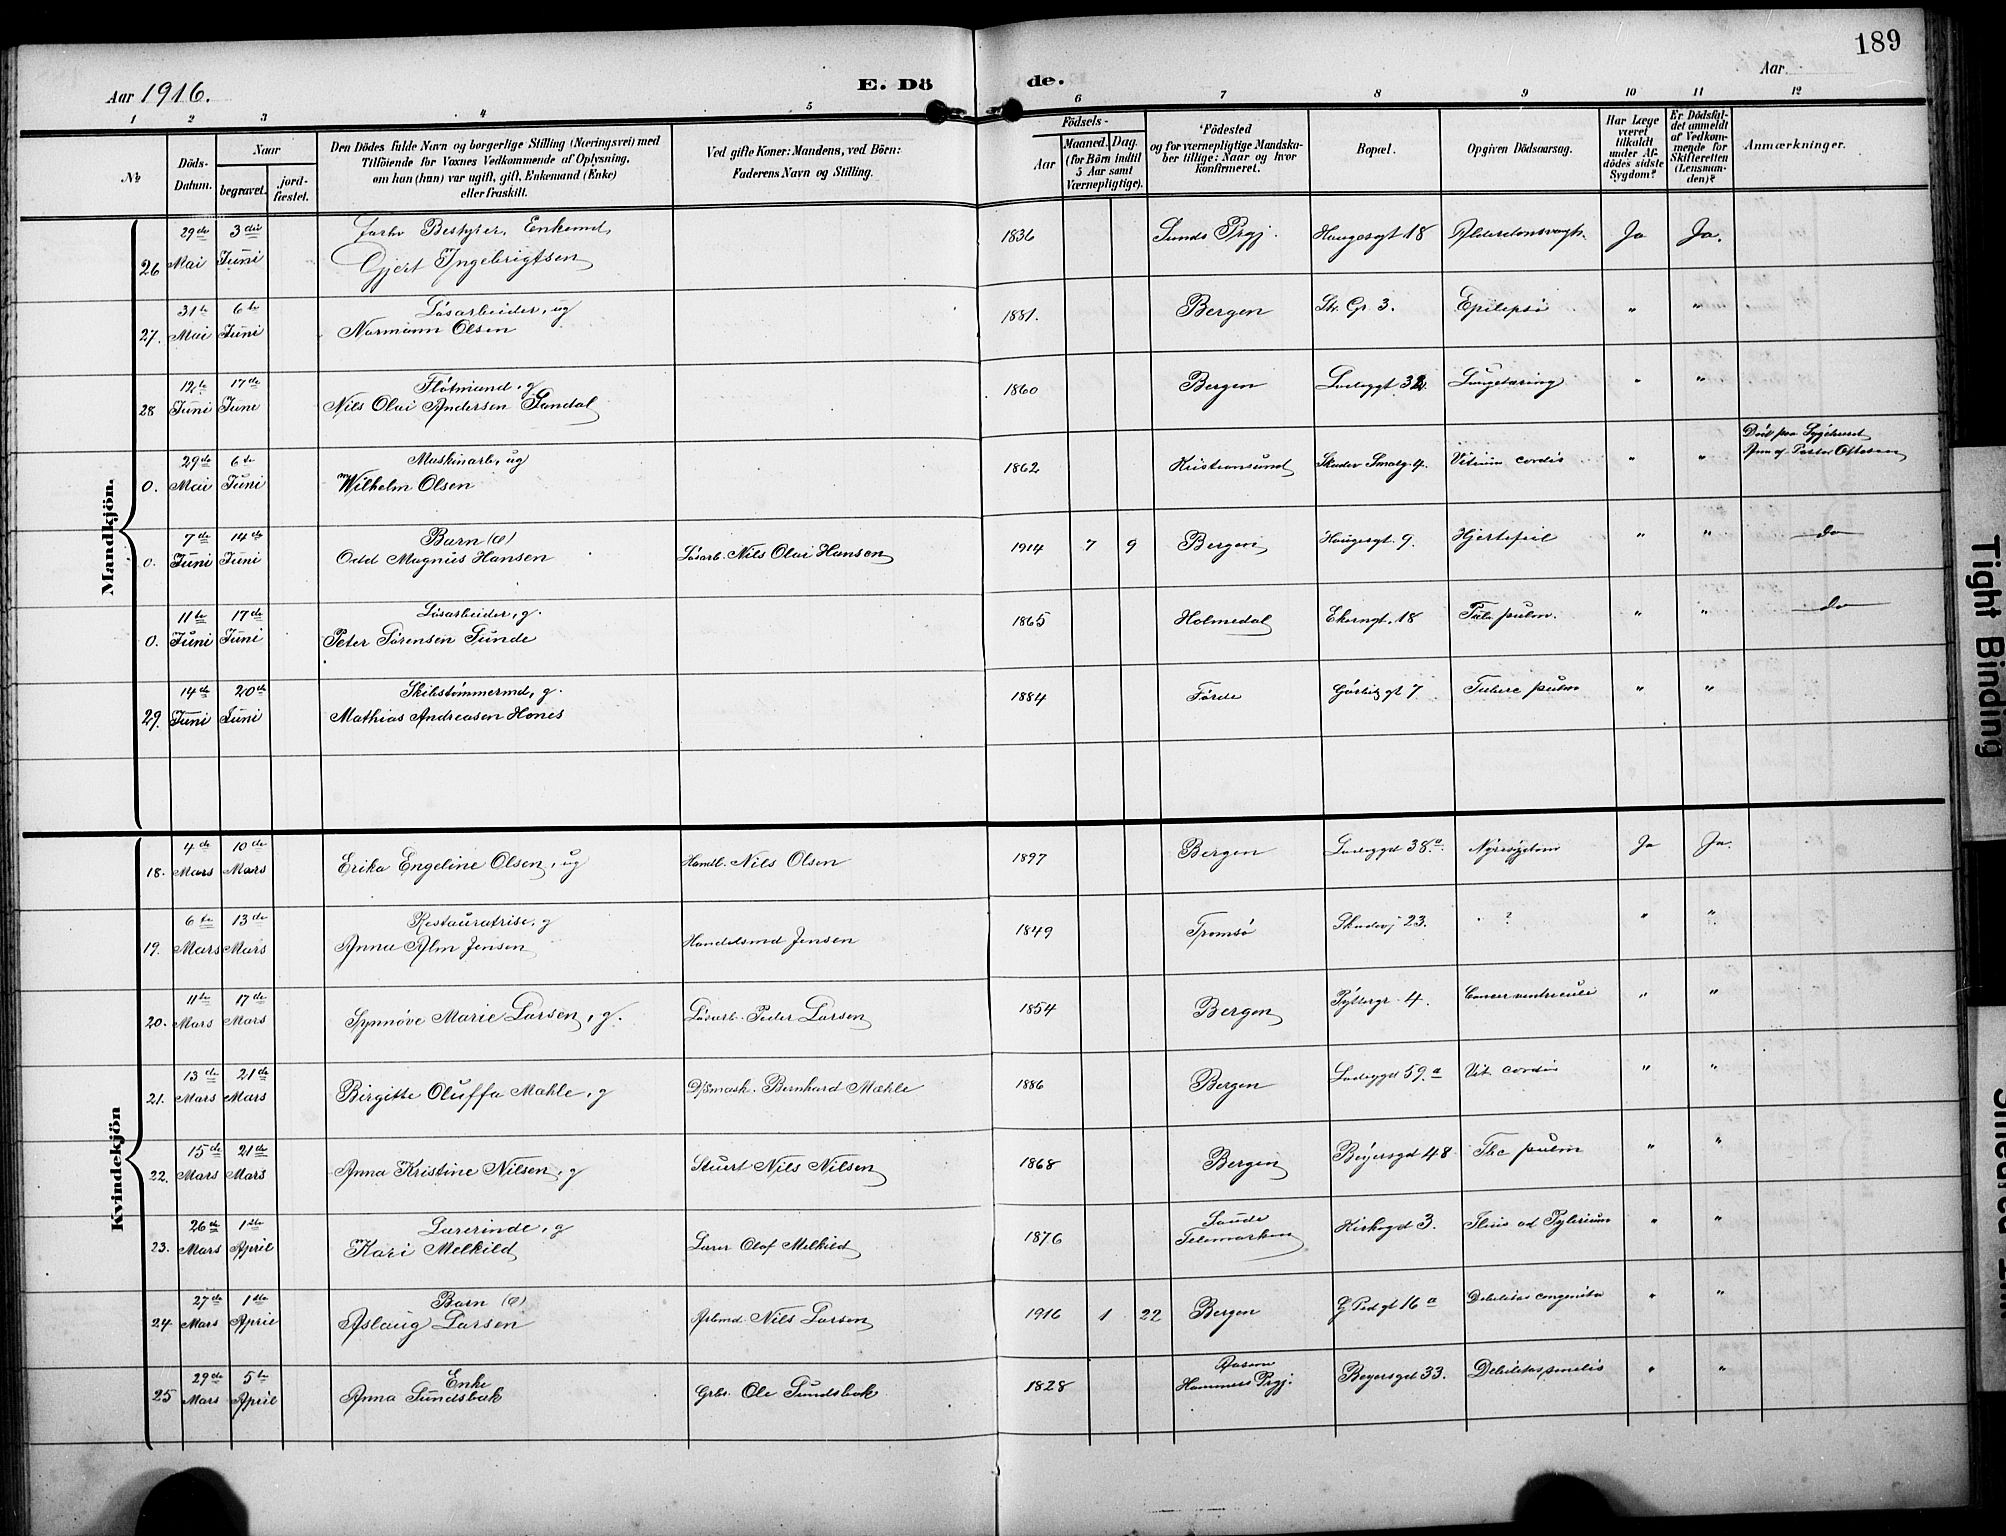 189
Aar 1916.
E. Dö de.
Aar
1 2 3 4 5 6 7 8 9 10 11 12
№
Döds-Datum.
Naar
begravet.
jord-fæstet.
Den Dödes fulde Navn og borgerlige Stilling (Næringsvei) med
Tilföiende for Voxnes Vedkommende af Oplysning,
om han (hun) var ugift, gift, Enkemand (Enke)
eller fraskilt.
Ved gifte Koner: Mandens, ved Börn:
Faderens Navn og Stilling.
Födsels-
Aar
Maaned. Dag.
(for Börn indtil
5 Aar samt
Værnepligtige).
Födested
og for værnepligtige Mandska-
ber tillige: Naar og hvor
konfirmeret.
Bopæl.
Opgiven Dödsaarsag.
Har Læge
været
tilkaldt
under Af-
dödes sidste
Sygdom?
Er Dödsfal-
det anmeldt
af Vedkom-
mende for
Skifteretten
(Lensman-
den)?
Anmærkninger.
Mandkjön.
29de 3die Bestyrer, Enkemd,
26 Mai Juni Gjert Ingebrigtsen 1836 Sunds Prgj. Haugesgt 18 Ja Ja.
31te 6te Løsarbeider, ug
27. Mai Juni Normann Olsen 1881. Bergen St. Gr. 3. Epilepsi " "
12te 17de Fløtmand, g
28 Juni Juni Nils Olai Andersen Sandal 1860 Bergen Ladeggt 32 Lungetæring " "
29de 6te Maskinarb, ug Død paa Sygehuset
0. Mai Juni Wilhelm Olsen 1862 Kristiansund Skudev Smalg. 4. Vitium cordis " " Anm af Pastor Ottesen
7de 14de Barn (æ)
0. Juni Juni Odd Magnus Hansen Løsarb. Nils Olai Hansen 1914 7 9 Bergen Haugesgt 9. Hjertefeil " " do
11te 17de Løsarbeider, g.
0. Juni Juni Peter Sørensen Sunde 1865 Holmedal Ekerngt. 18 Tub. pulm. " " do
14de 20de Skibstømmermd, g.
29. Juni Juni Mathias Andreasen Hones 1884 Førde gt 7 Tuberc pulm " "
Kvindekjön
4de 10de
18. Mars Mars Erika Engeline Olsen, ug Handl. Nils Olsen 1897 Bergen Ladeggd 38a. Nyresygdom Ja Ja.
6te 13de Restauratrise, g
19. Mars Mars Anna Alm Jensen Handelsmd Jensen 1849 Tromsø Skudevj 23. ? " "
11te 17de
20. Mars Mars Synnøve Marie Larsen, g. Løsarb. Peder Larsen 1854 Bergen Pyttergr. 4. Cancer ventriculi " "
13de 21de
21. Mars Mars Birgitte Oluffa Mæhle, g D/Smask. Bernhard Mæhle 1886 Bergen Ladeggd 59.a Vit. cordis " "
15de 21de
22. Mars Mars Anna Kristine Nilsen, g Stuert Nils Nilsen 1868 Bergen Beyersgd 48 Tbc pulm " "
26de 1ste Lærerinde, g Saude
23. Mars April Kari Melkild Lærer Olaf Melkild 1876 Telemarken Kirkegd 3. " "
27de 1ste Barn (æ)
24. Mars April Aslaug Larsen Arbmd. Nils Larsen 1916 1 22 Bergen gt 16a Debilitas congenita " "
29de 5te Enke
25 Mars April Anna Sundsbak Grbr. Ole Sundsbak 1828 Hammers Prgj. Beyersgd 33. Debilitas senilis " "
Tight Binding